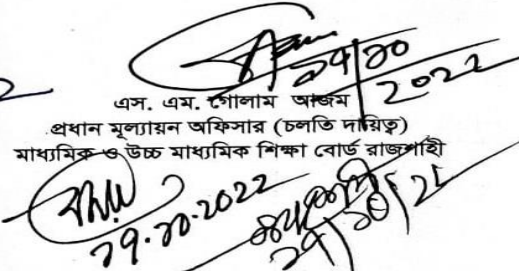 ২৭/১০
২০২২
এস. এম. গোলাম আজম
প্রধান মূল্যায়ন অফিসার (চলতি দায়িত্ব)
মাধ্যমিক ও উচ্চ মাধ্যমিক শিক্ষা বোর্ড রাজশাহী
২৭.১০.২০২২